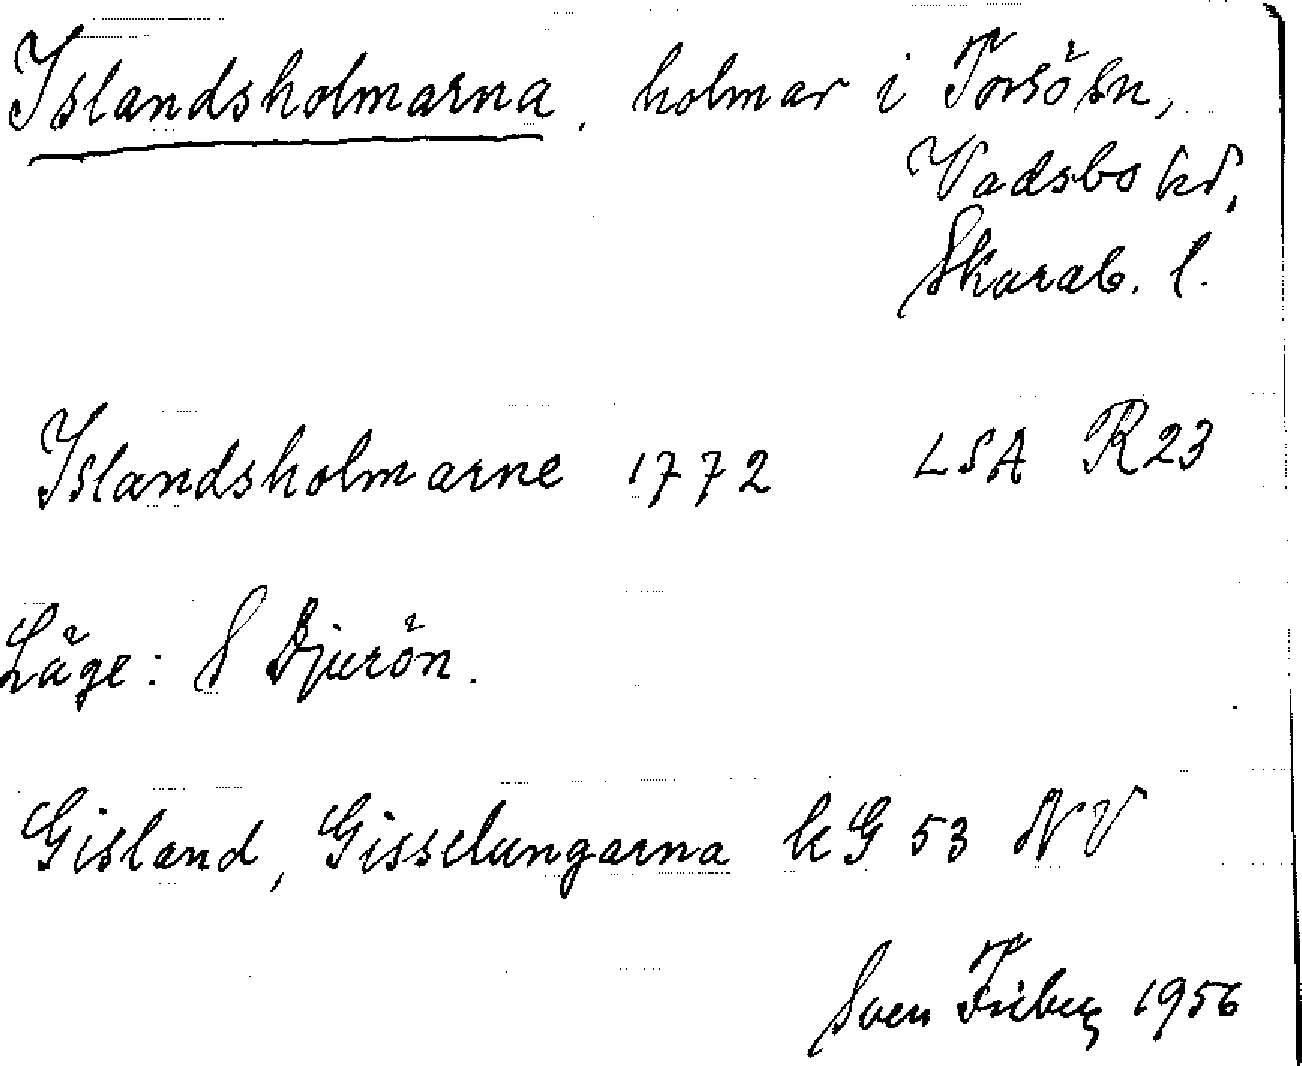 Islandsholmarna, holmar i Torsö sn,
Vadsbo hd,
Skarab. l.
Islandsholmarne 1772 LSA R23
Läge: S Djurön.
Gisland, Gisselungarna kG 53 NV
Sven Friberg 1956